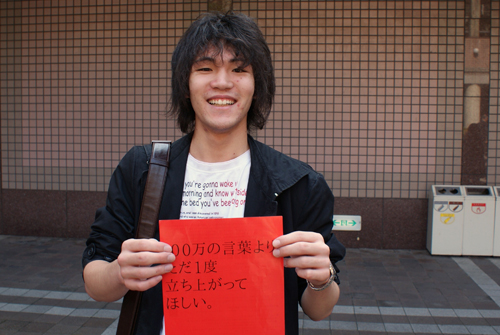 you're gonna wake
morning and know
the bed you've
00万の言葉より
だ1度
立ち上がって
ほしい。